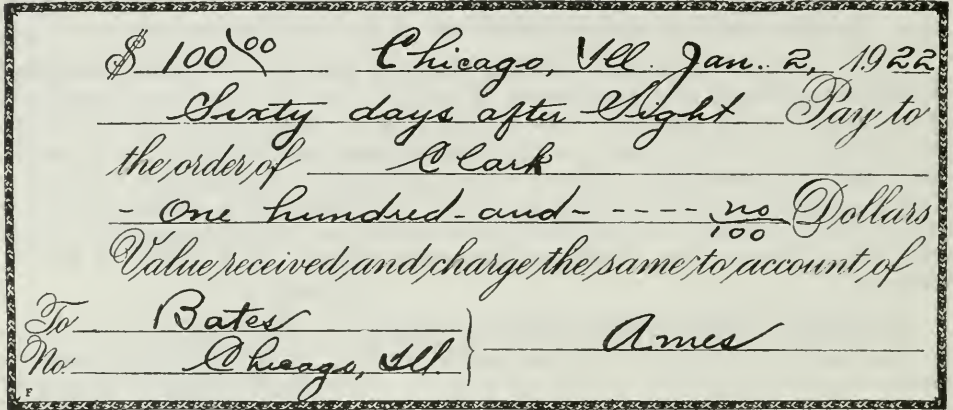 $ 100 00 Chicago, Ill. Jan. 2, 1922
Sixty days after Sight Pay to
the order of Clark
- One hundred - and - - - - - no/100 Dollars
Value received and charge the same to account of
To Bates
No. Chicago, Ill.
Ames
F